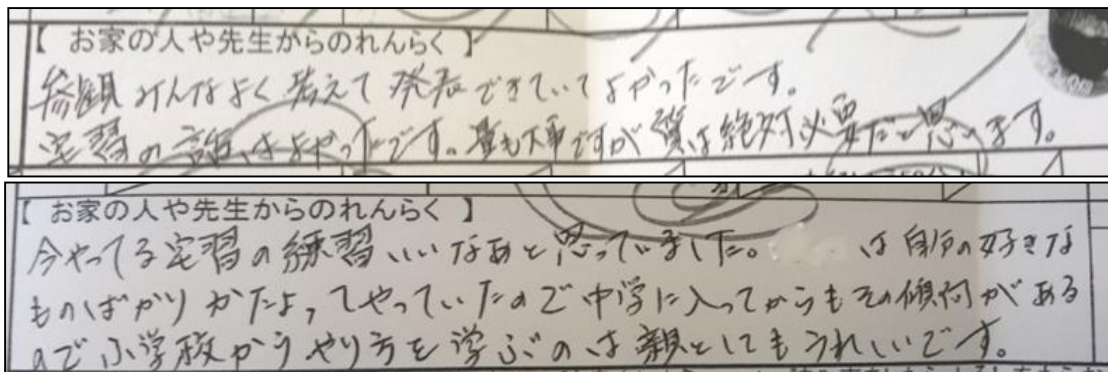 【 お家の人や先生からのれんらく 】
参観 みんなよく考えて発表できていてよかったです。
宅習の話はよかったです。量も大事ですが質は絶対必要だと思います。
【 お家の人や先生からのれんらく 】
今やってる宅習の練習いいなあと思っていました。 は自分の好きな
ものばかりかたよってやっていたので中学に入ってからもその傾向がある
ので小学校からやり方を学ぶのは親としてもうれしいです。